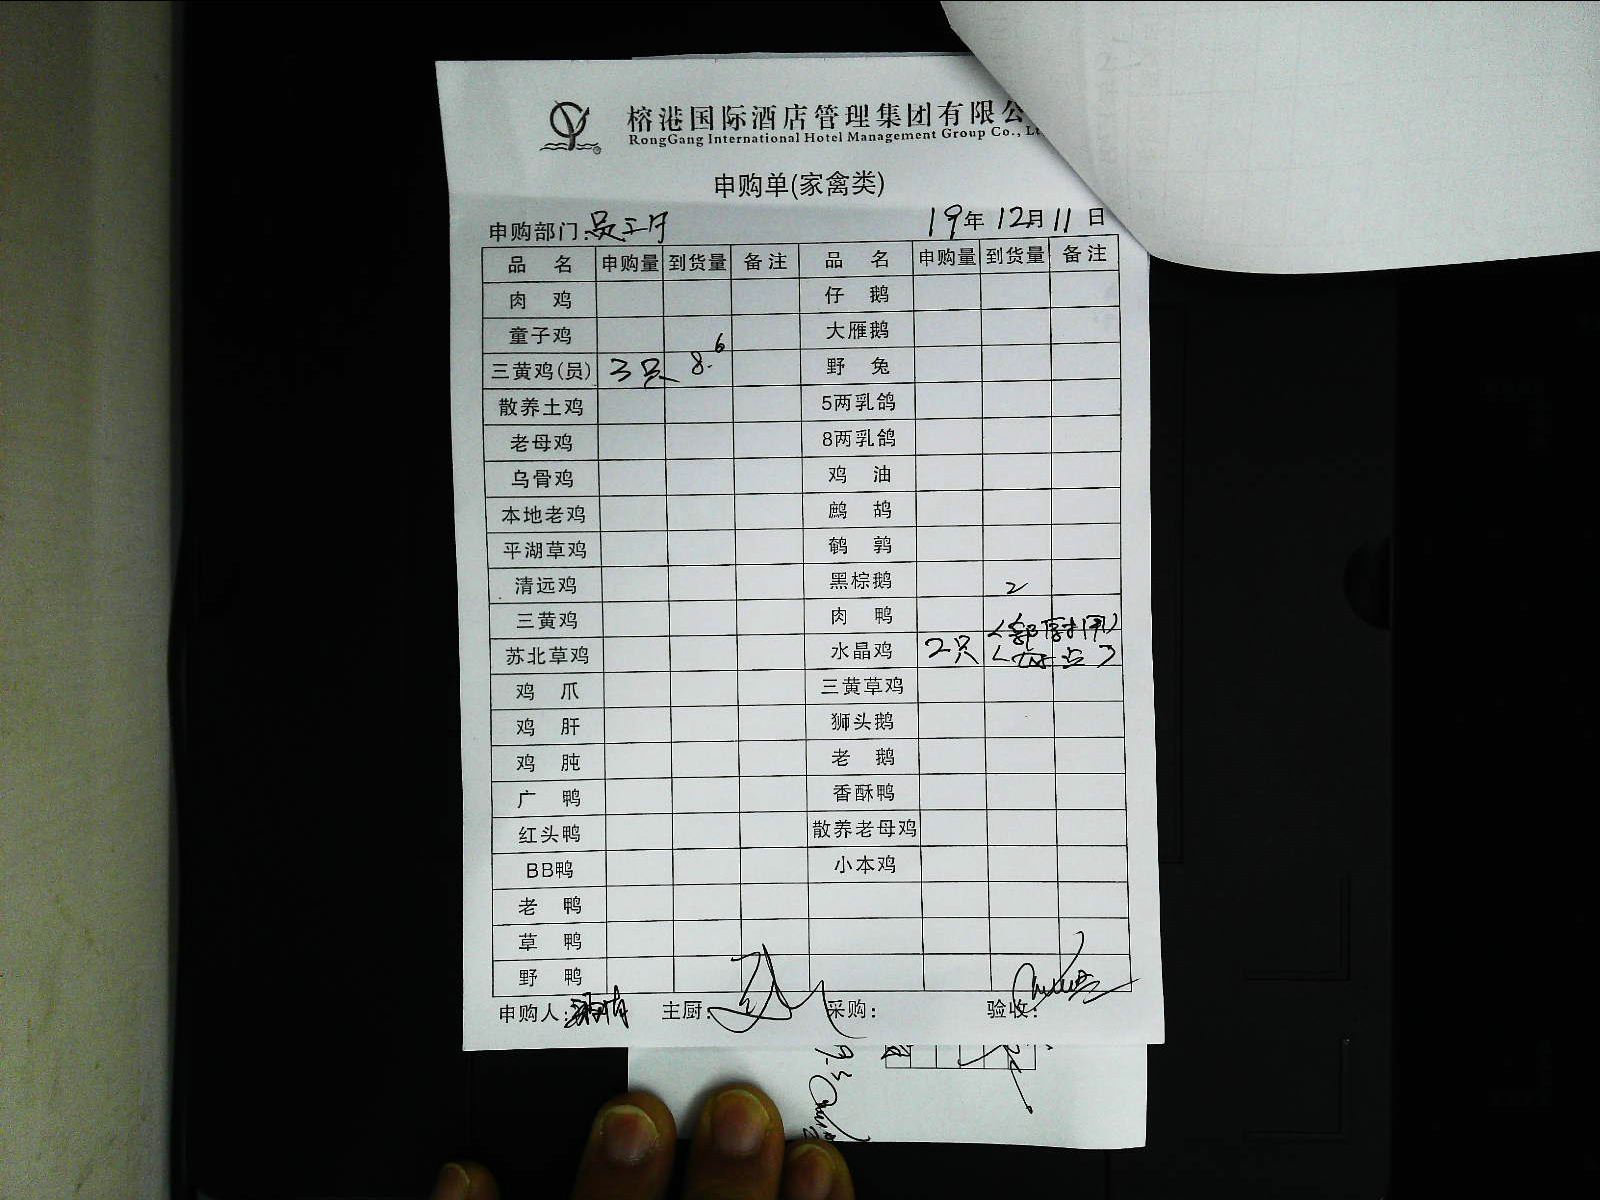 榕港国际酒店管理集团有限公
RongGang International Hotel Management Group Co., Lt
申购单(家禽类)
申购部门: 19年12月11日
品 名 申购量 到货量 备注 品 名 申购量 到货量 备注
肉 鸡 仔 鹅
童子鸡 大雁鹅
三黄鸡(员) 3只 8.6 野 兔
散养土鸡 5两乳鸽
老母鸡 8两乳鸽
乌骨鸡 鸡 油
本地老鸡 鹧 鸪
平湖草鸡 鹌 鹑
清远鸡 黑棕鹅 2
三黄鸡 肉 鸭
苏北草鸡 水晶鸡 2只 (好点)
鸡 爪 三黄草鸡
鸡 肝 狮头鹅
鸡 肫 老 鹅
广 鸭 香酥鸭
红头鸭 散养老母鸡
BB鸭 小本鸡
老 鸭
草 鸭
野 鸭
申购人: 主厨: 采购: 验收: